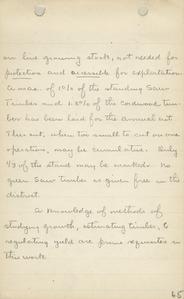 on live growing stock, not needed for
protection and accessible for exploitation
A max. of 10% of the standing Saw
Timber and 1.8% of the Cordwood tim-
ber has been laid for the annual cut
This cut, when too small to cut on one
operation, may be cumulative. Only
2/3 of the stand may be marked. No
green saw timber is given free in the
district.
A knowledge of methods of
studying growth, estimating timber, &
regulating yield are prime requisites in
this work.
65